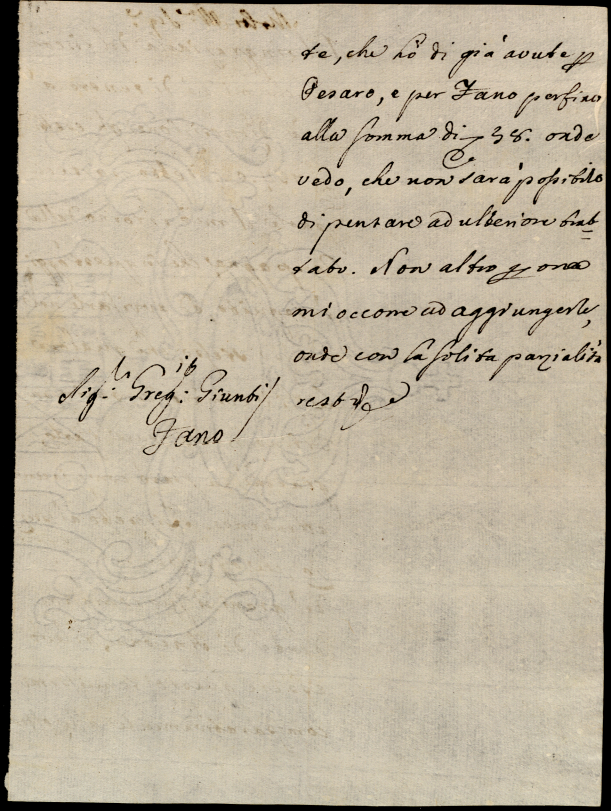 te, che hò di già avute p
Pesaro, e per Fano perfino
alla somma di 38. onde
vedo, che non sarà possibile
di pensare ad ulteriore trat=
tato. Non altro p ora
mi occorre ad aggiungerle,
onde con la solita parzialità
resto
Sig.r Greg.io Giunti
Fano